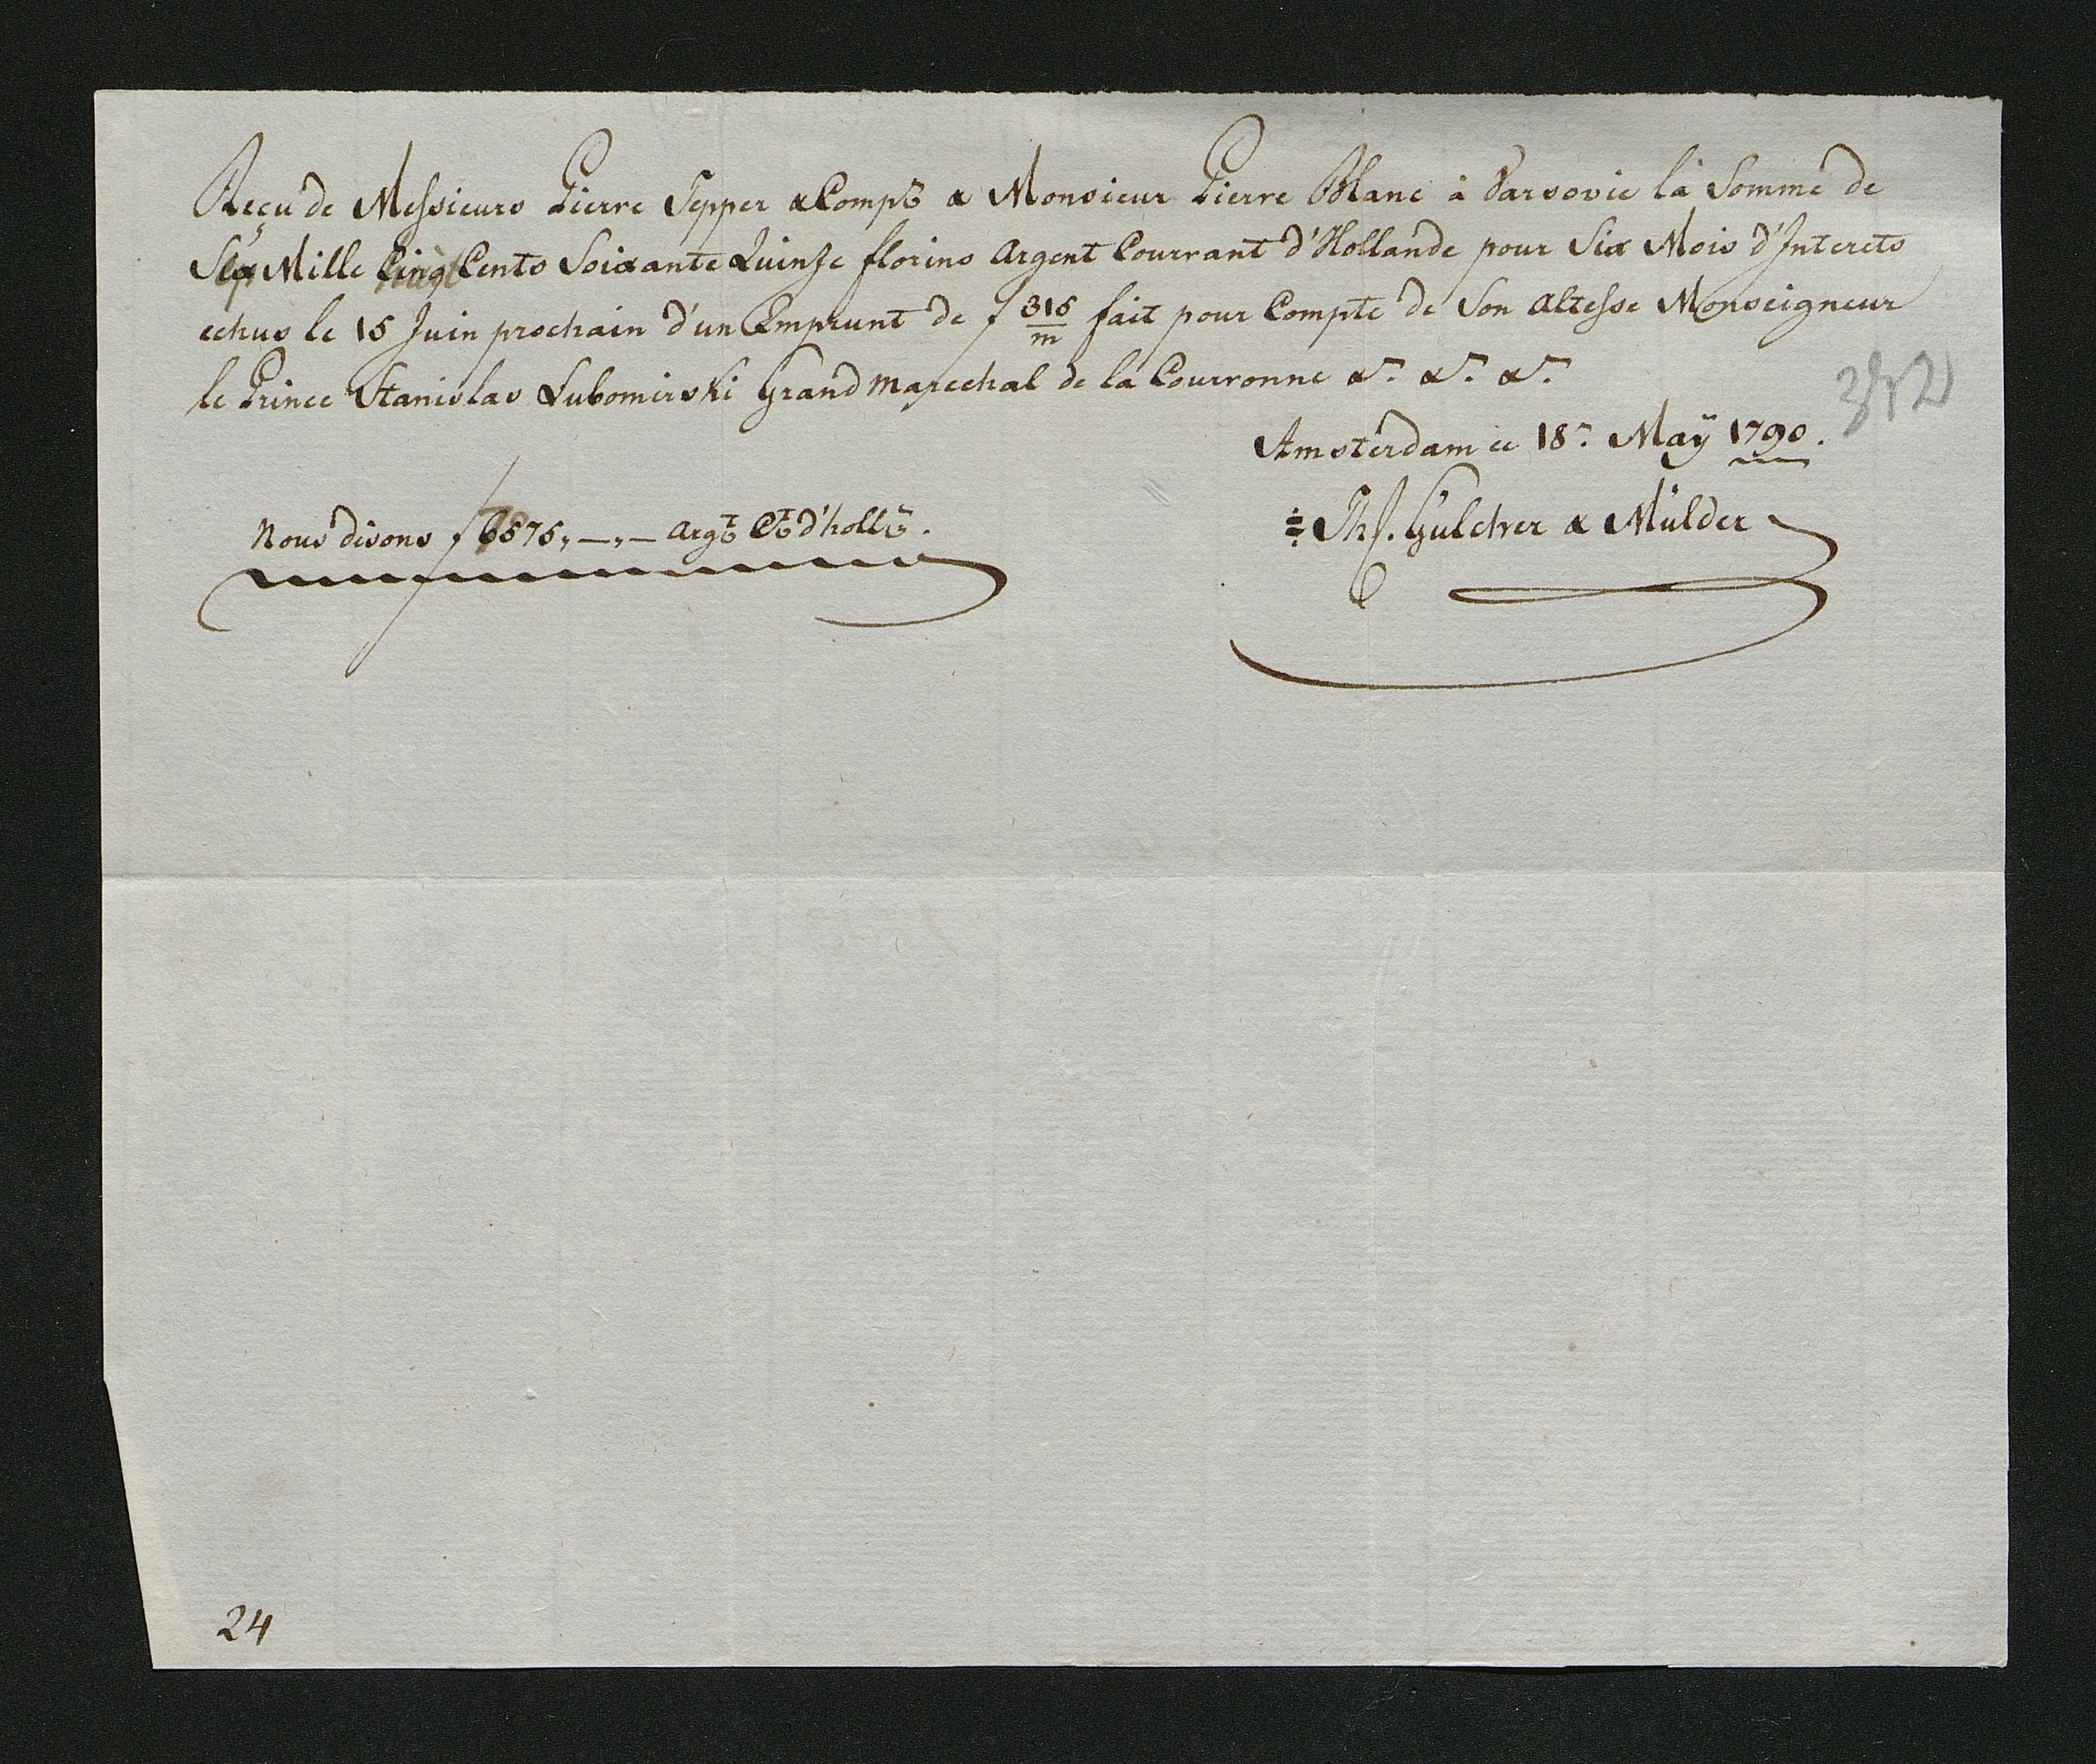 Reçu de Messieurs Pierre Tepper & Compe & Monsieur Pierre Blanc à Varsovie la Somme de
Mille Cinq Cents Soixante Quinze florins Argent Courrant d'Hollande pour Six Mois d'Interets
echus le 15 Juin prochain d'un Emprunt de f 315/m fait pour Compte de Son Altesse Monseigneur
le Prince Stanislas Lubomirski Grand Marechal de la Courronne &c. &c. &c.
352
Amsterdam ce 18e May 1790.
Nous disons f 6575,—,— Argt Ct d'holle.
Ths. Gülcher & Mülder
24